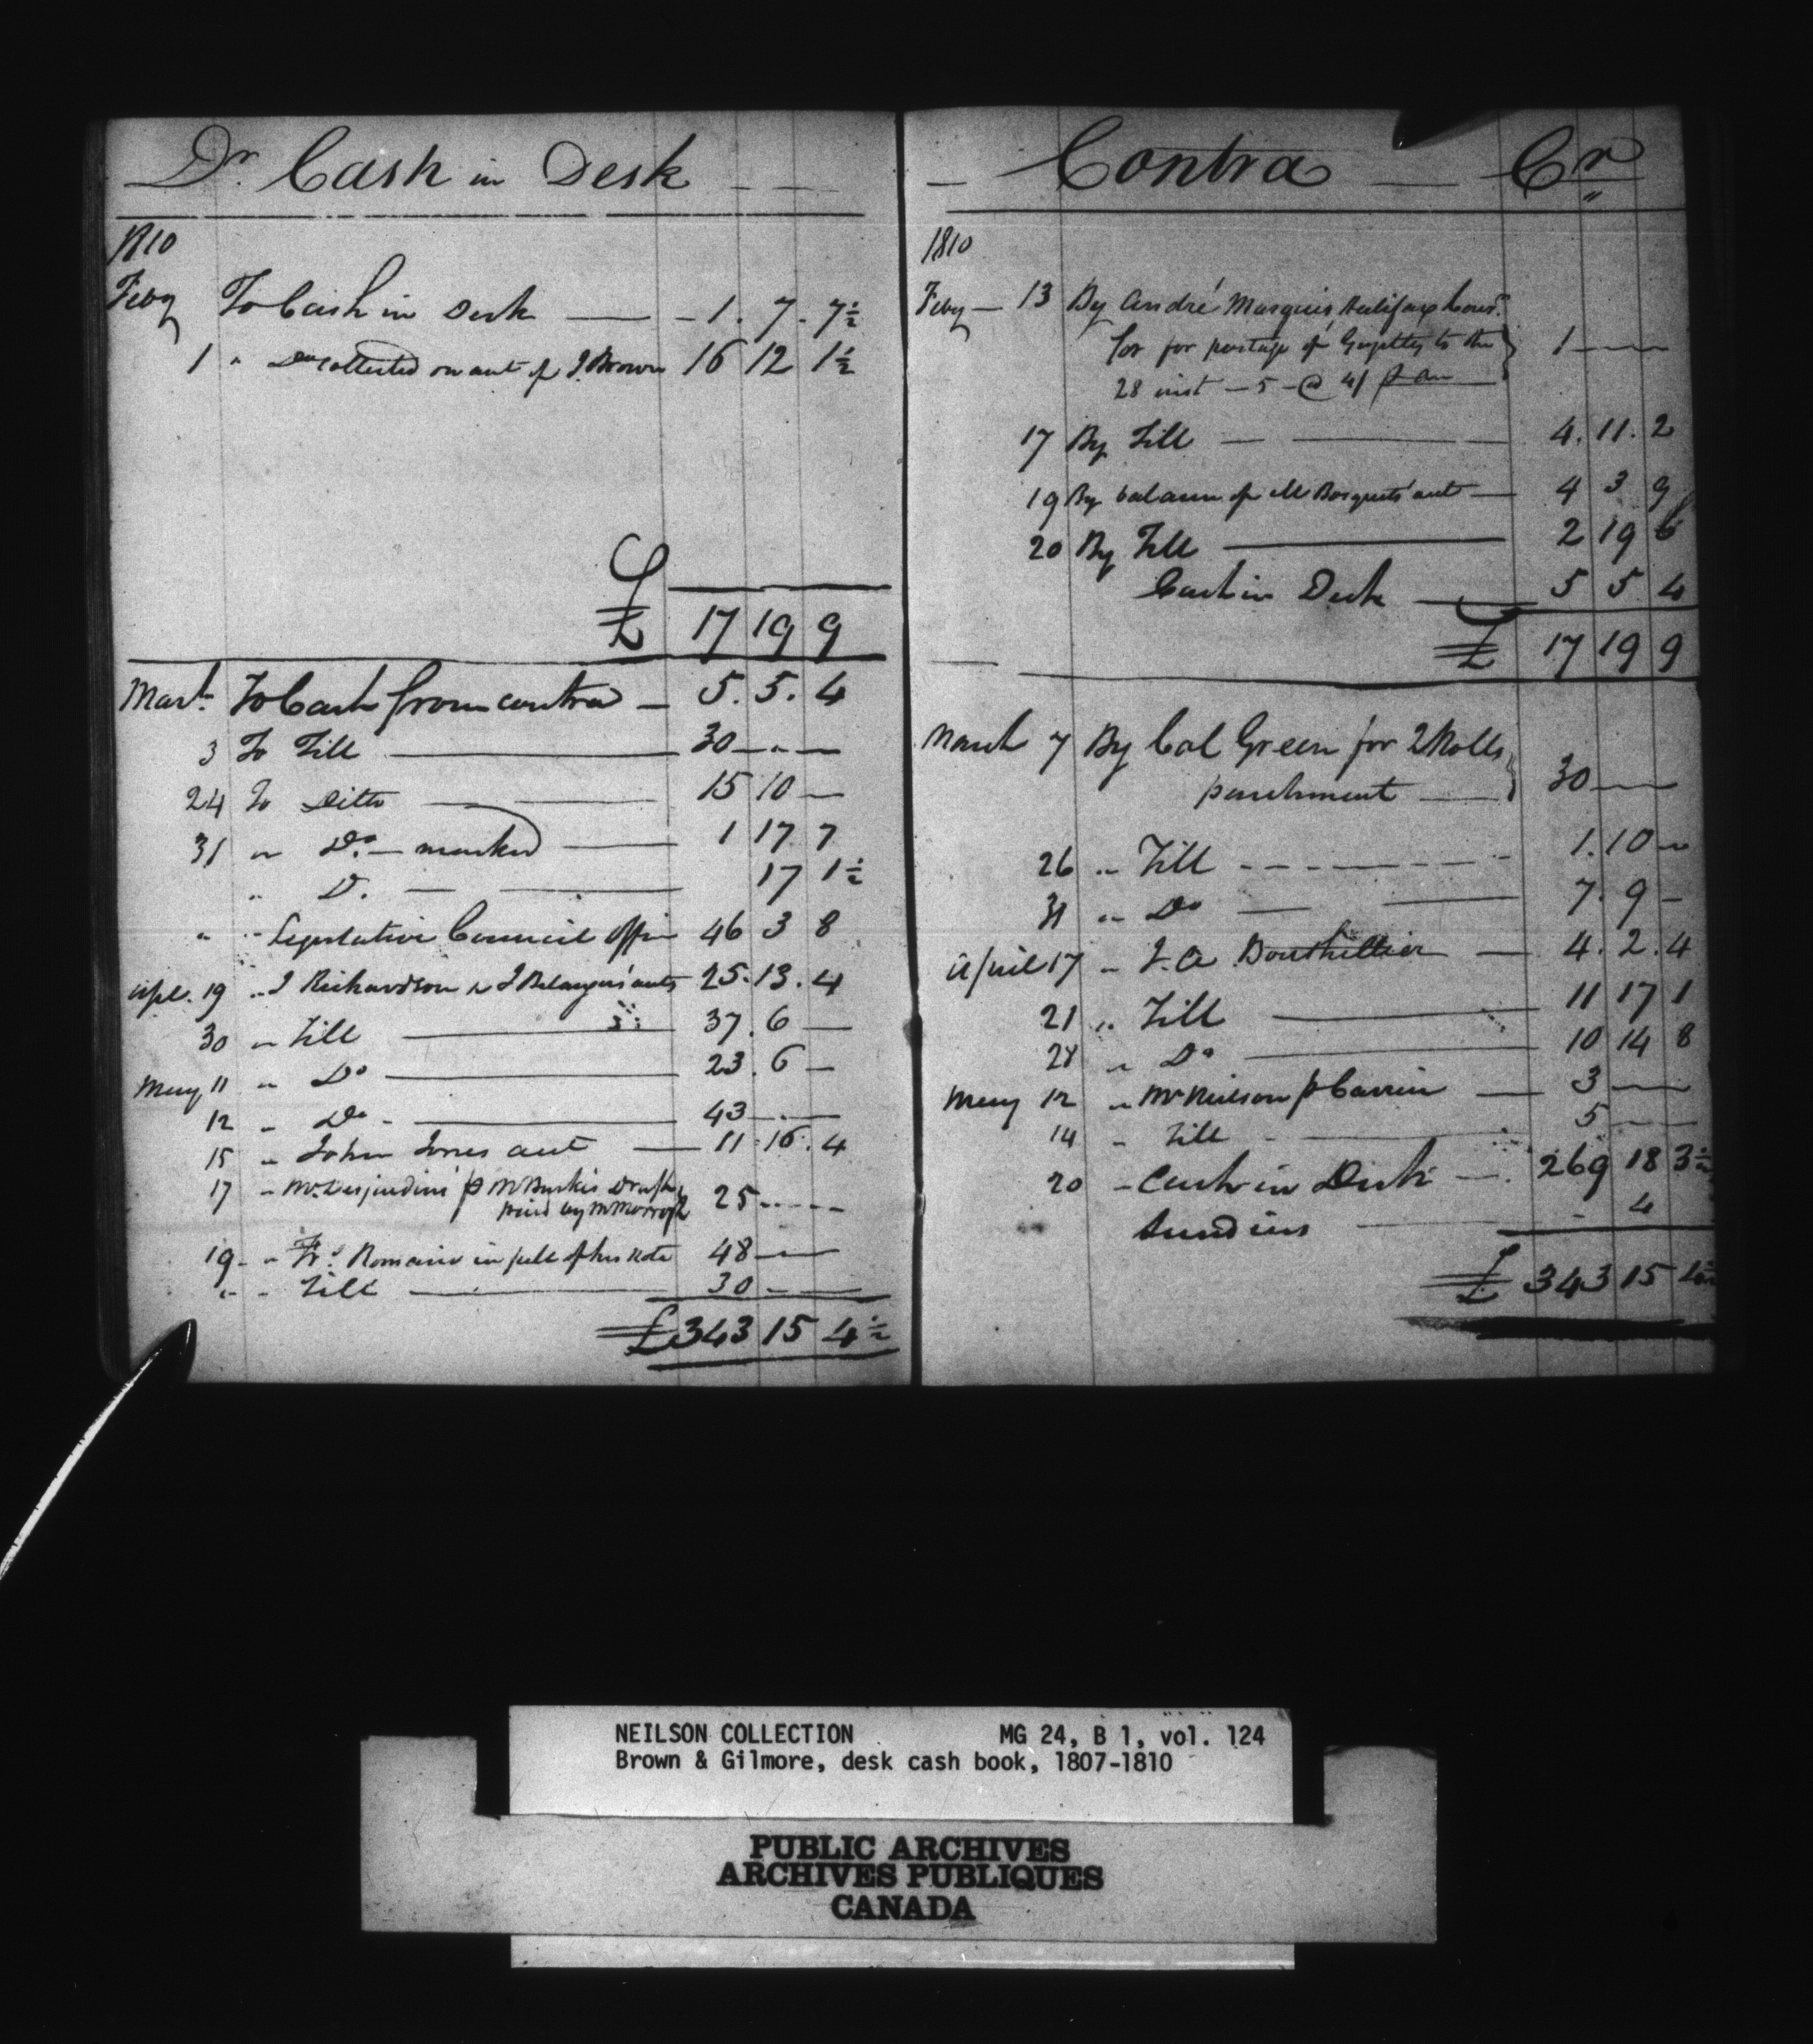 Dr. Cash in Desk
1810
Feby To Cash in Desk 1. 7. 7½
1 " Do collected on act of J. Brown 16 12 1½
£ 17 19 9
Mar. To Cash from contra 5. 5. 4
3 To Till 30
24 To Ditto 15 10
31 " Do. marked 1 17 7
" D. 17 1½
" " Legislative Council Offic 46 3 8
Apl. 19 " J Richardson & J Belanger's acts 25. 13. 4
30 " Till 37. 6
May 11 " Do 23. 6
12 " Do 43
15 " John Jones act 11. 16. 4
17 " Mr. Desjardins p Mr Burkes Draft
paid by Mr Morrogh 25
19 " Frs. Romain in full of his Note 48
" " Till 30
£343 15 4½
Contra Cr
1810
Feby 13 By André Marquis Halifax Cour.
for postage of Gazettes to the
28 inst 5 @ 4/ p an 1
17 By Till 4. 11. 2
19 By balance of M Bosquets act 4 3 9
20 By Till 2 19 6
Cash in Desk 5 5 4
£ 17 19 9
March 7 By Col Green for 2 Rolls
parchment 30
26 " Till 1. 10
31 " Do 7. 9
April 17 " J. A Bouthillier 4. 2. 4
21 " Till 11 17 1
28 " Do 10 14 8
May 12 " Mr Neilson p Carrier 3
14 " Till 5
20 " Cash in Desk 269 18 3½
Sundries 4
£ 343 15 4½
NEILSON COLLECTION MG 24, B 1, vol. 124
Brown & Gilmore, desk cash book, 1807-1810
PUBLIC ARCHIVES
ARCHIVES PUBLIQUES
CANADA